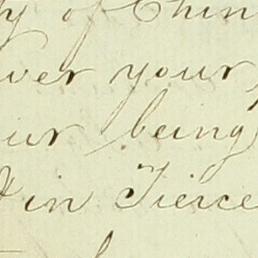 y of Chin
ver your
ur being
in Tierce